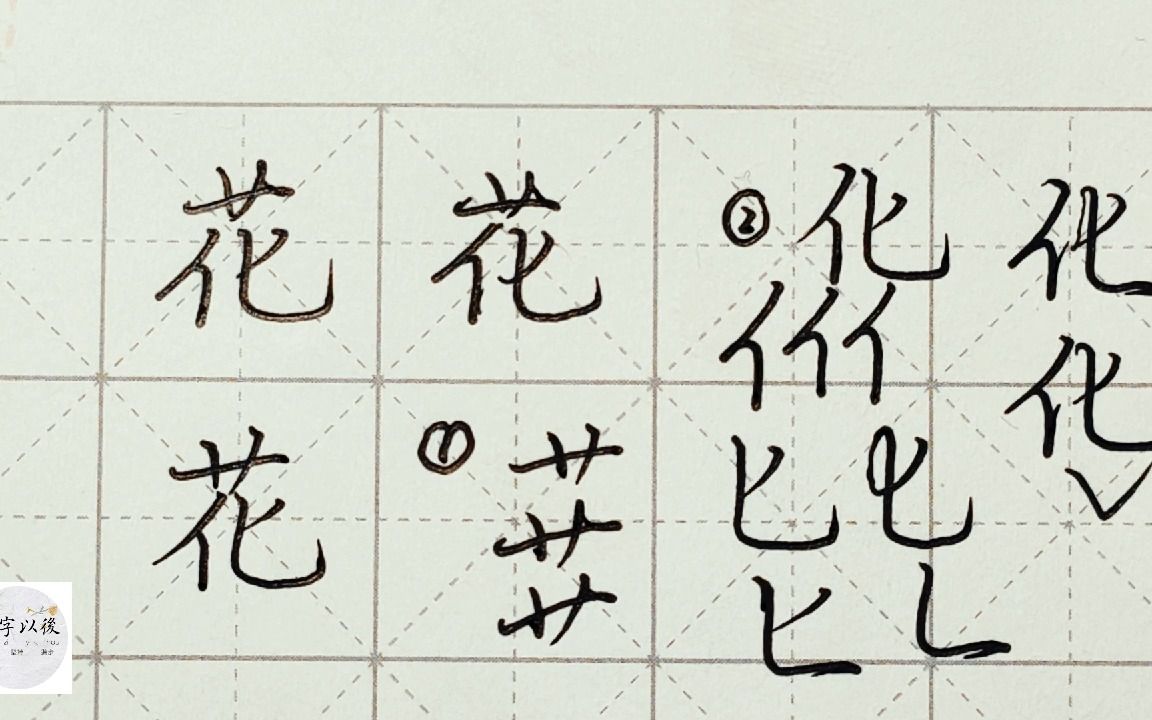 花 花 ② 化 化
亻亻亻 化
花 ① 艹 匕 匕
艹
艹 匕 乚
字以後